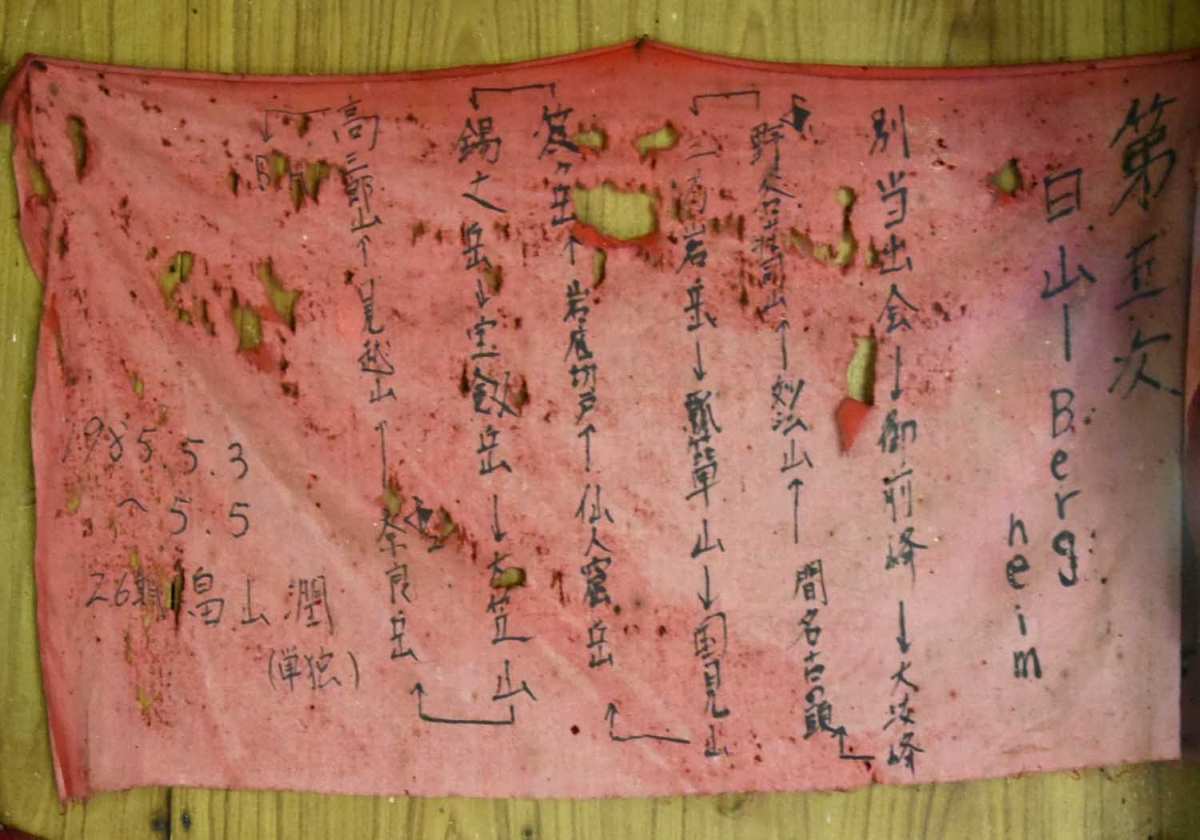 第五次
白山ーBerg
heim
別当出会→御前峰→大汝峰
間名古の頭
→妙法山→野谷荘司山
三方岩岳→瓢箪山→国見山
仙人窟岳→岩底切戸→笈ヶ岳
錫丈岳→宝剣岳→大笠山
奈良岳
→見越山→高三郎山
B H
1985.5.3
〜5.5
26期 畠山潤
(単独)